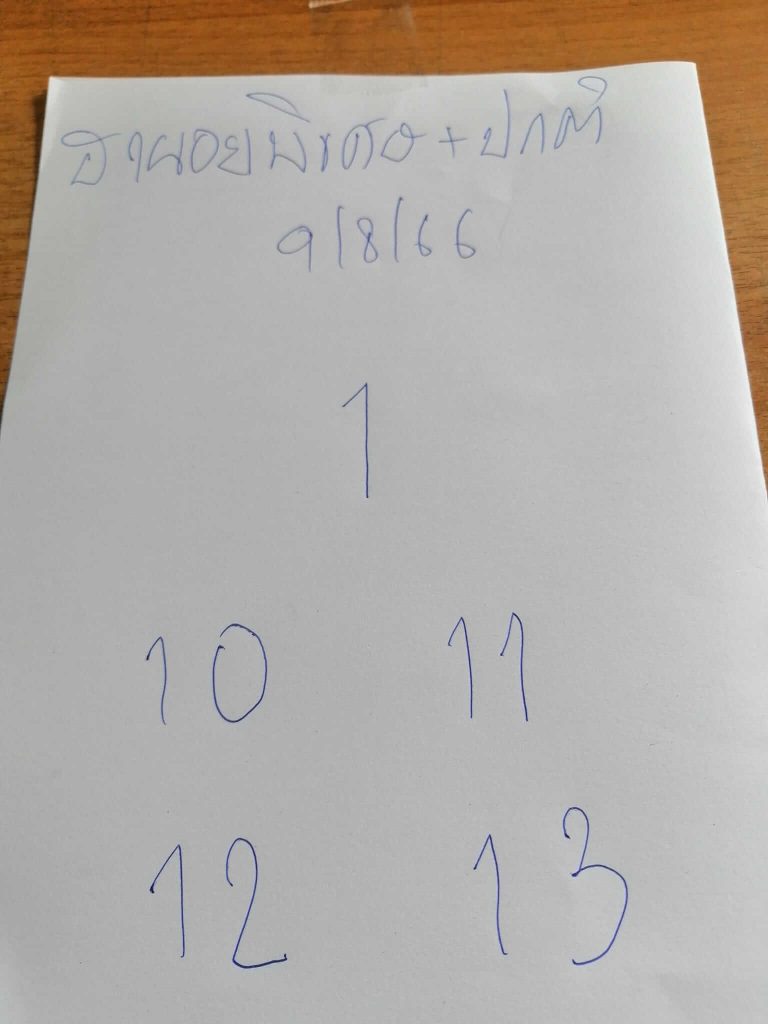 ฮานอยพิเศษ+ปกติ
9/8/66
1
10 11
12 13